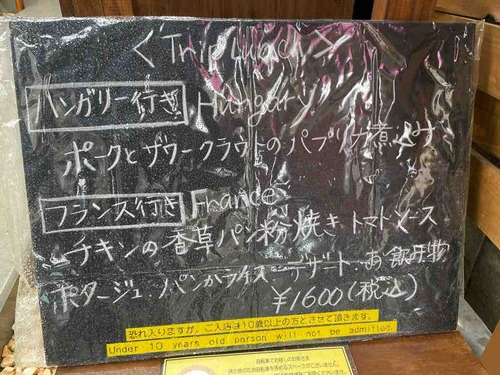 <Trip Lunch>
ハンガリー行き Hungary
ポークとザワークラウトのパプリカ煮込み
フランス行き France
チキンの香草パン粉焼き トマトソース
ポタージュ・パンかライス・デザート・お飲み物
¥1600(税込)
恐れ入りますが、ご入店は10歳以上の方とさせて頂きます。
Under 10 years old person will not be admitted.
自転車でお越しのお客さまへ